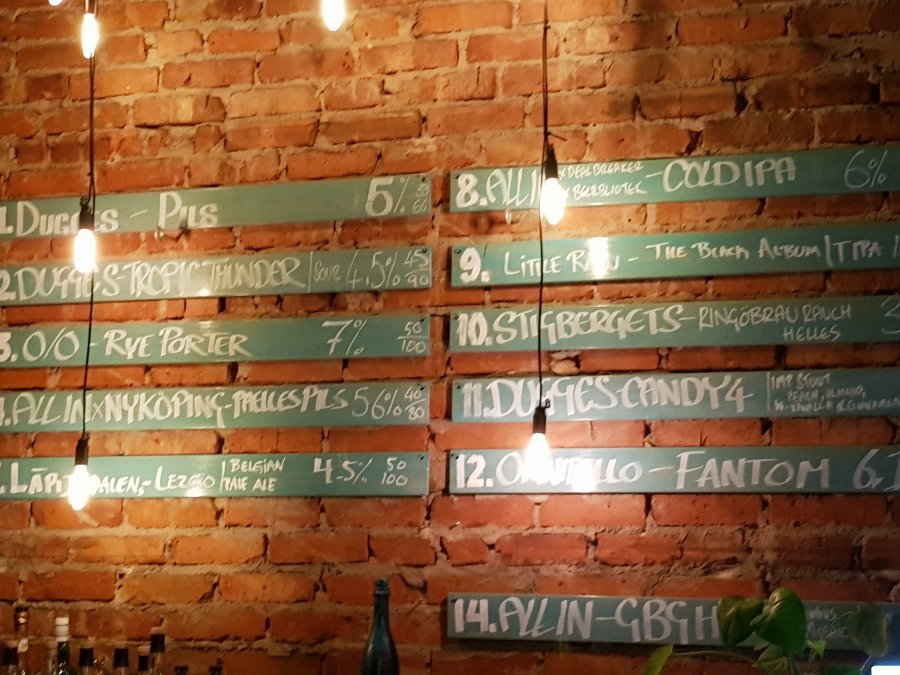 1. DUGGES - PILS 5%
2. DUGGES TROPIC THUNDER | SOUR 4,5% 45 90
3. O/O - RYE PORTER 7% 50 100
ALL IN x NYKÖPING - PAELLES PILS 5 6% 40 80
LEZGO | BELGIAN PALE ALE 4.5% 50 100
8. ALL IN x DEALBREAKER x BIERBLIOTEK - COLD IPA 6%
9. LITTLE - THE BLACK ALBUM | TIPA
10. STIGBERGETS - RINGÖBRAU RAUCH HELLES
11. DUGGES - CANDY 4 | IMP STOUT
PEACH, ALMOND,
12. - FANTOM 6.
14. ALL IN - GBGH